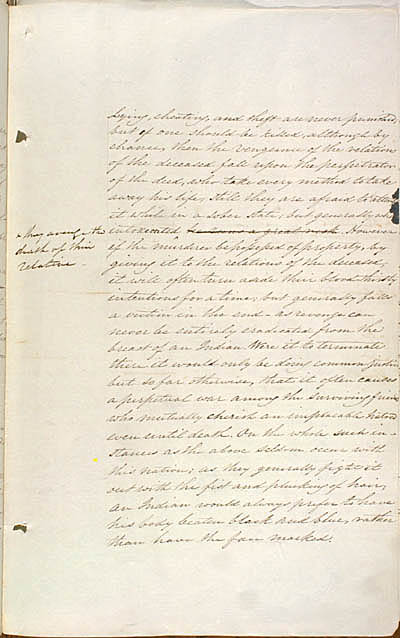 Lying, cheating, and theft are never punished,
but if one should be killed, although by
chance, then the vengeance of the relations
of the deceased fall upon the perpetrator
of the deed, who take every method to take
away his life, still they are afraid to
it while in a sober state, but generally
intoxicated. However
if the murderer be possessed of property, by
giving it to the relations of the deceased,
it will often turn aside their blood thirsty
intentions for a time, but generally falls
a victim in the end as revenge can
never be entirely eradicated from the
breast of an Indian. Were it to terminate
there it would only be doing common justice
but so far otherwise, that it often causes
a perpetual war among the surviving
who mutually cherish an implacable hatred
even until death. On the whole such in-
stances as the above seldom occur with
this nation; as they generally fight it
out with the fist and plucking of hair,
an Indian would always prefer to have
his body beaten black and blue, rather
than have the face marked.
avenge the
death of their
relative